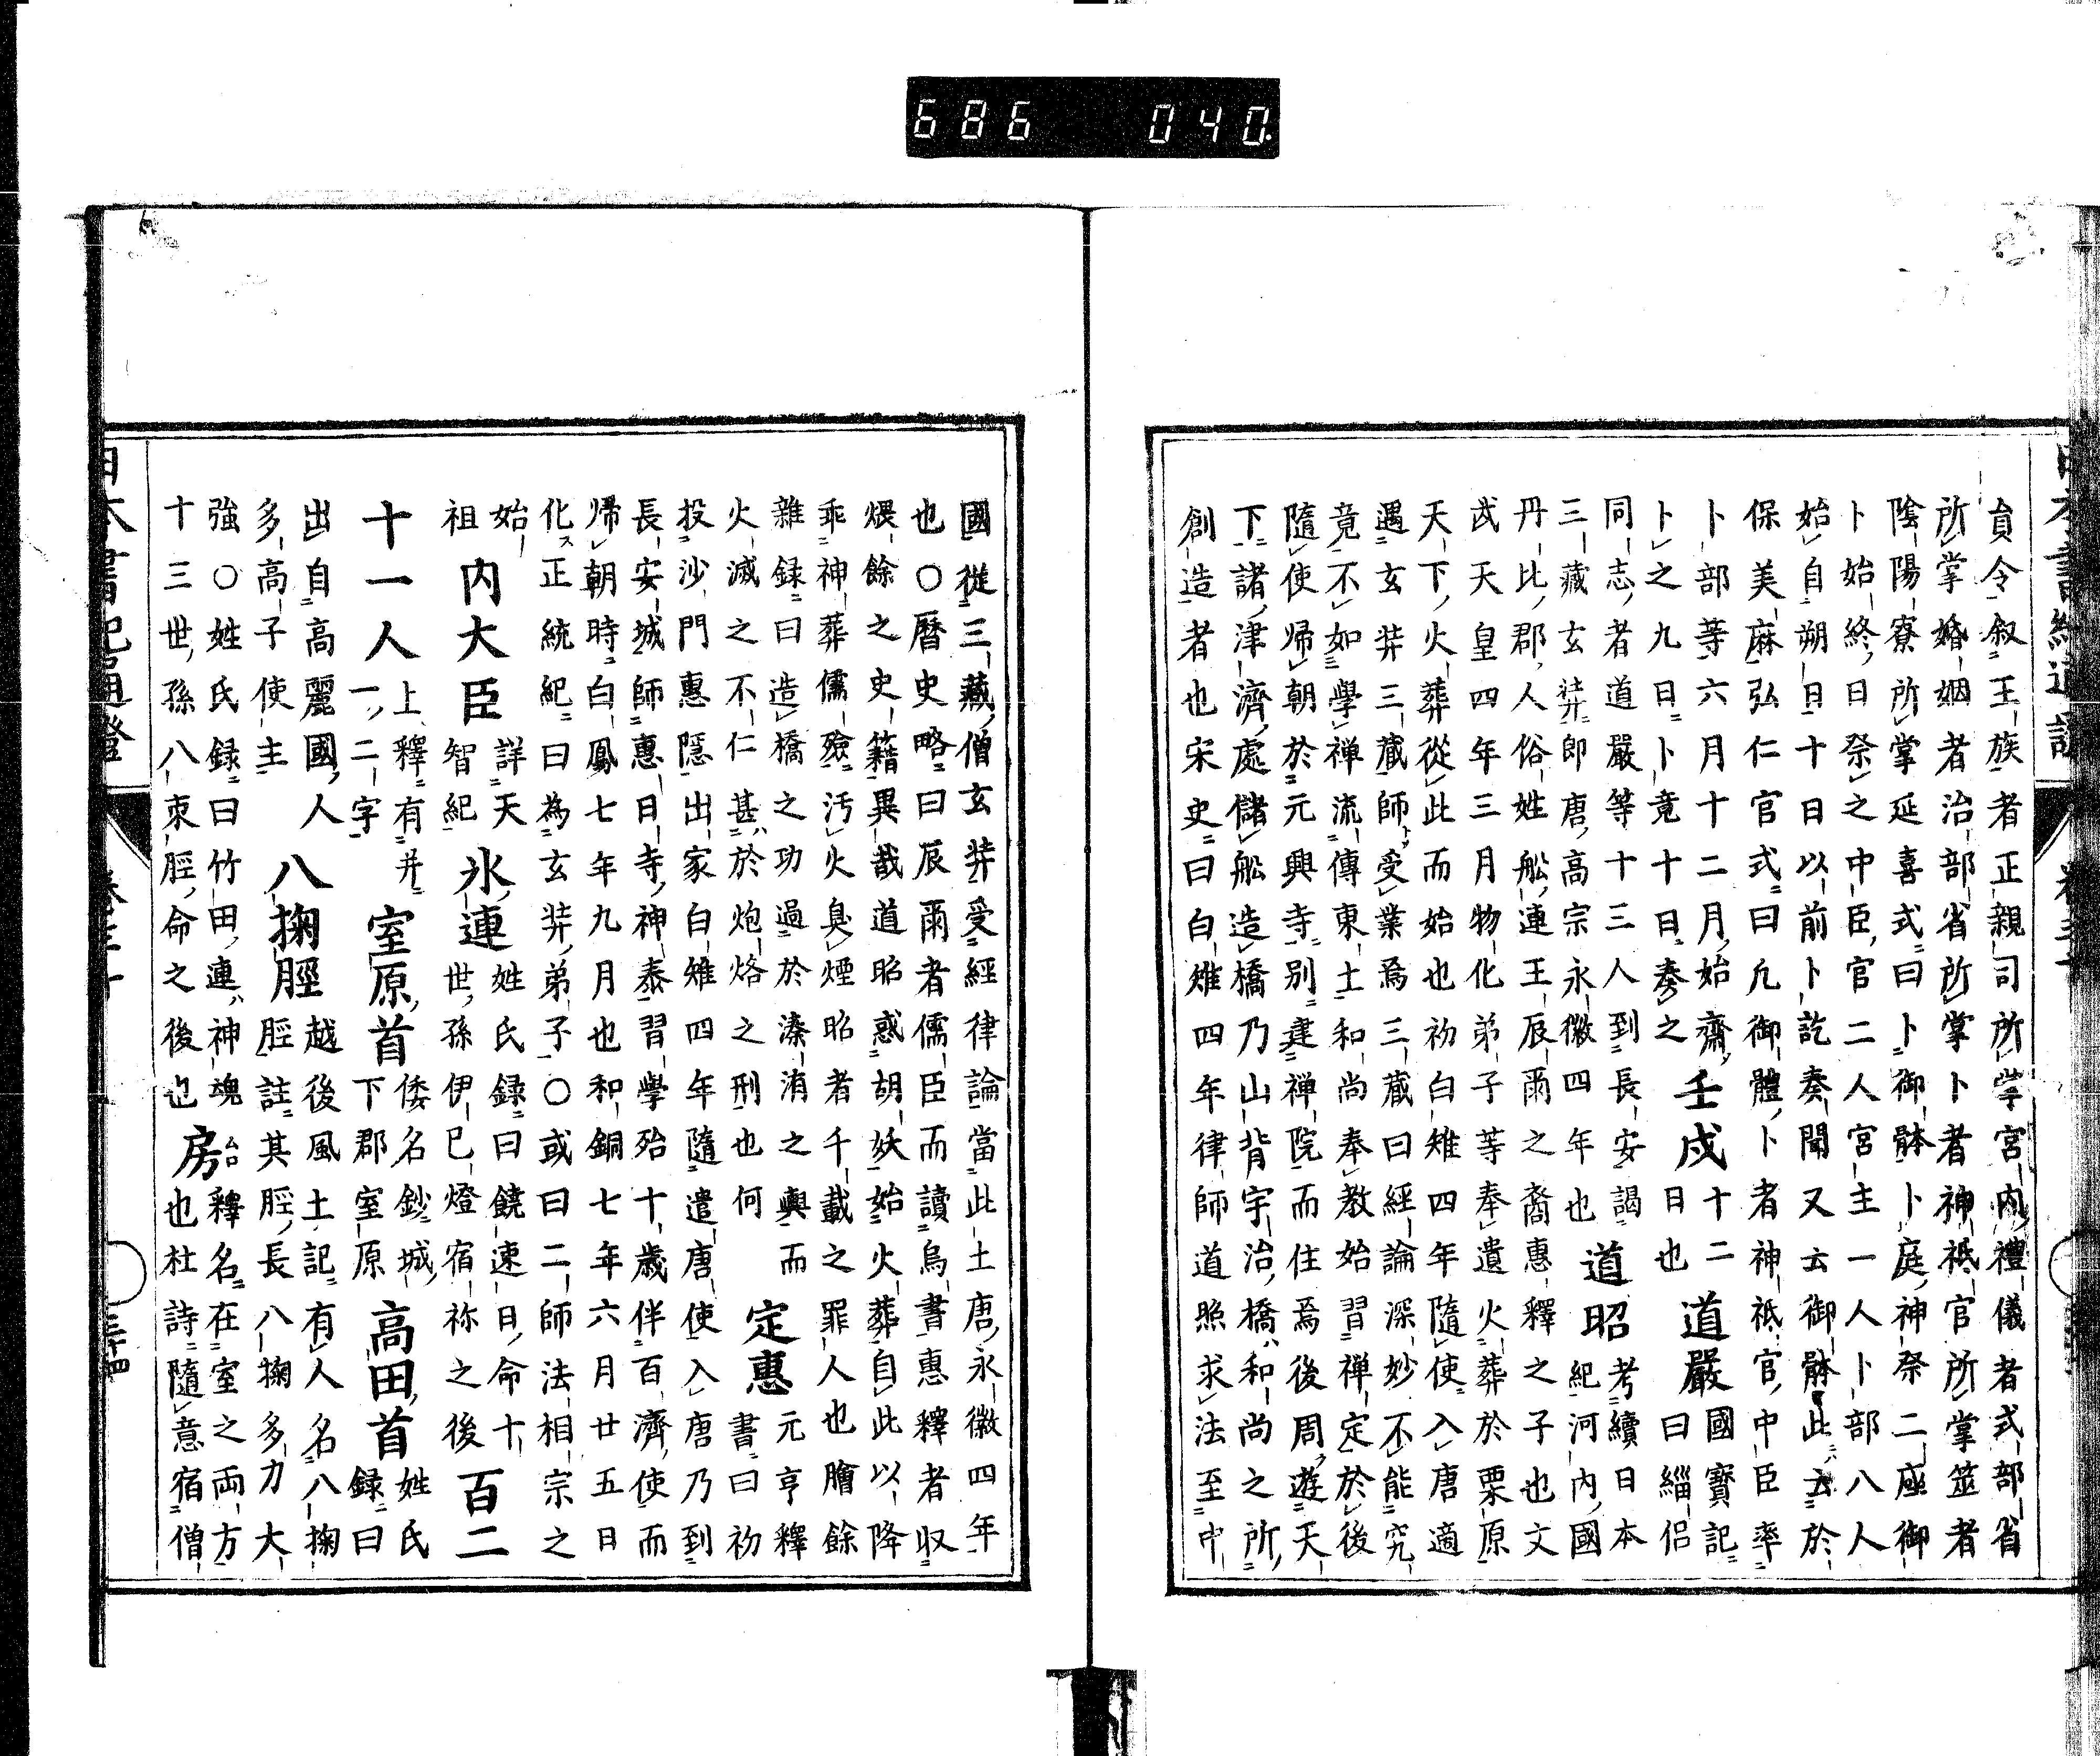 686 040
員令叙王族者正親司所掌宮内禮儀者式部省
所掌婚姻者治部省所掌卜者神祇官所掌筮者
陰陽寮所掌延喜式曰卜御躰卜庭神祭二座御
卜始終日祭之中臣官二人宮主一人卜部八人
始自朔日十日以前卜訖奏聞又云御躰此云於
保美麻弘仁官式曰凡御體卜者神祇官中臣率
卜部等六月十二月始齋壬戌十二道嚴國寶記
卜之九日卜竟十日奏之日也曰緇侶
同志者道嚴等十三人到長安謁道昭考續日本
三藏玄奘即唐高宗永徽四年也紀河内國
丹比郡人俗姓船連王辰爾之裔惠釋之子也文
武天皇四年三月物化弟子等奉遺火葬於栗原
天下火葬從此而始也初白雉四年隨使入唐適
遇玄弉三蔵師受業焉三蔵曰經論深妙不能究
竟不如學禅流傳東土和尚奉教始習禅定於後
隨使歸朝於元興寺別建禅院而住焉後周遊天
下諸津濟處儲船造橋乃山背宇治橋和尚之所
創造者也宋史曰白雉四年律師道照求法至中
國從三藏僧玄弉受經律論當此土唐永徽四年
也○暦史略曰辰爾者儒臣而讀烏書惠釋者収
煨餘之史籍異哉道昭惑胡妖始火葬自此以降
乖神葬儒殮汚火臭煙昭者千載之罪人也膾餘
雜録曰造橋之功過於溱洧之輿而定惠元亨釋
火滅之不仁甚於炮烙之刑也何書曰初
投沙門惠隱出家白雉四年隨遣唐使入唐乃到
長安城師惠日寺神泰習學殆十歳伴百濟使而
帰朝時白鳳七年九月也和銅七年六月廿五日
化正統紀曰為玄弉弟子○或曰二師法相宗之
始内大臣詳天氷連姓氏録曰饒速日命十百二
祖智紀世孫伊己燈宿祢之後
十一人上釋有并室原首倭名鈔城高田首姓氏
一二字下郡室原録曰
出自高麗國人八掬脛越後風土記有人名八掬
多高子使主脛註其脛長八掬多力大
強○姓氏録曰竹田連神魂房釋名在室之両方
十三世孫八束脛命之後也也杜詩隨意宿僧
卷三十
三十四